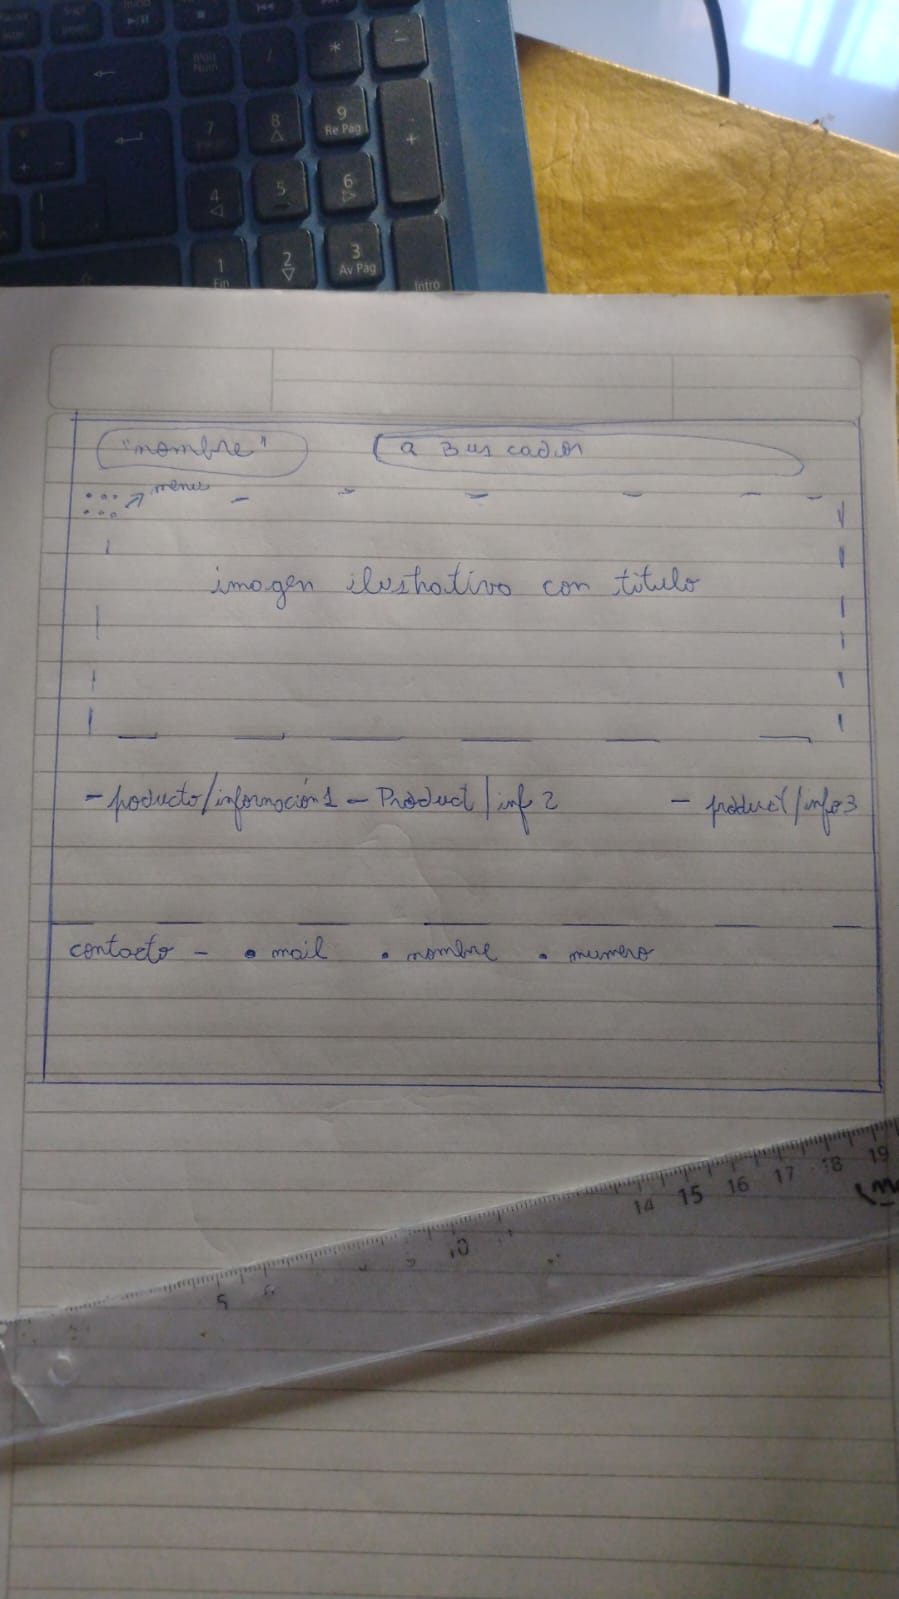 Inicio
*
-
Bloq
Num
/
7
8
9
Re Pág
+
4
5
6
1
Fin
2
3
Av Pág
Intro
"nombre"
Q Buscador
menu
imagen ilustrativo con titulo
- poducto/información 1 - Product/inf 2 - product/info 3
contacto - • mail • nombre • numero
5 6 10 14 15 16 17 18 19